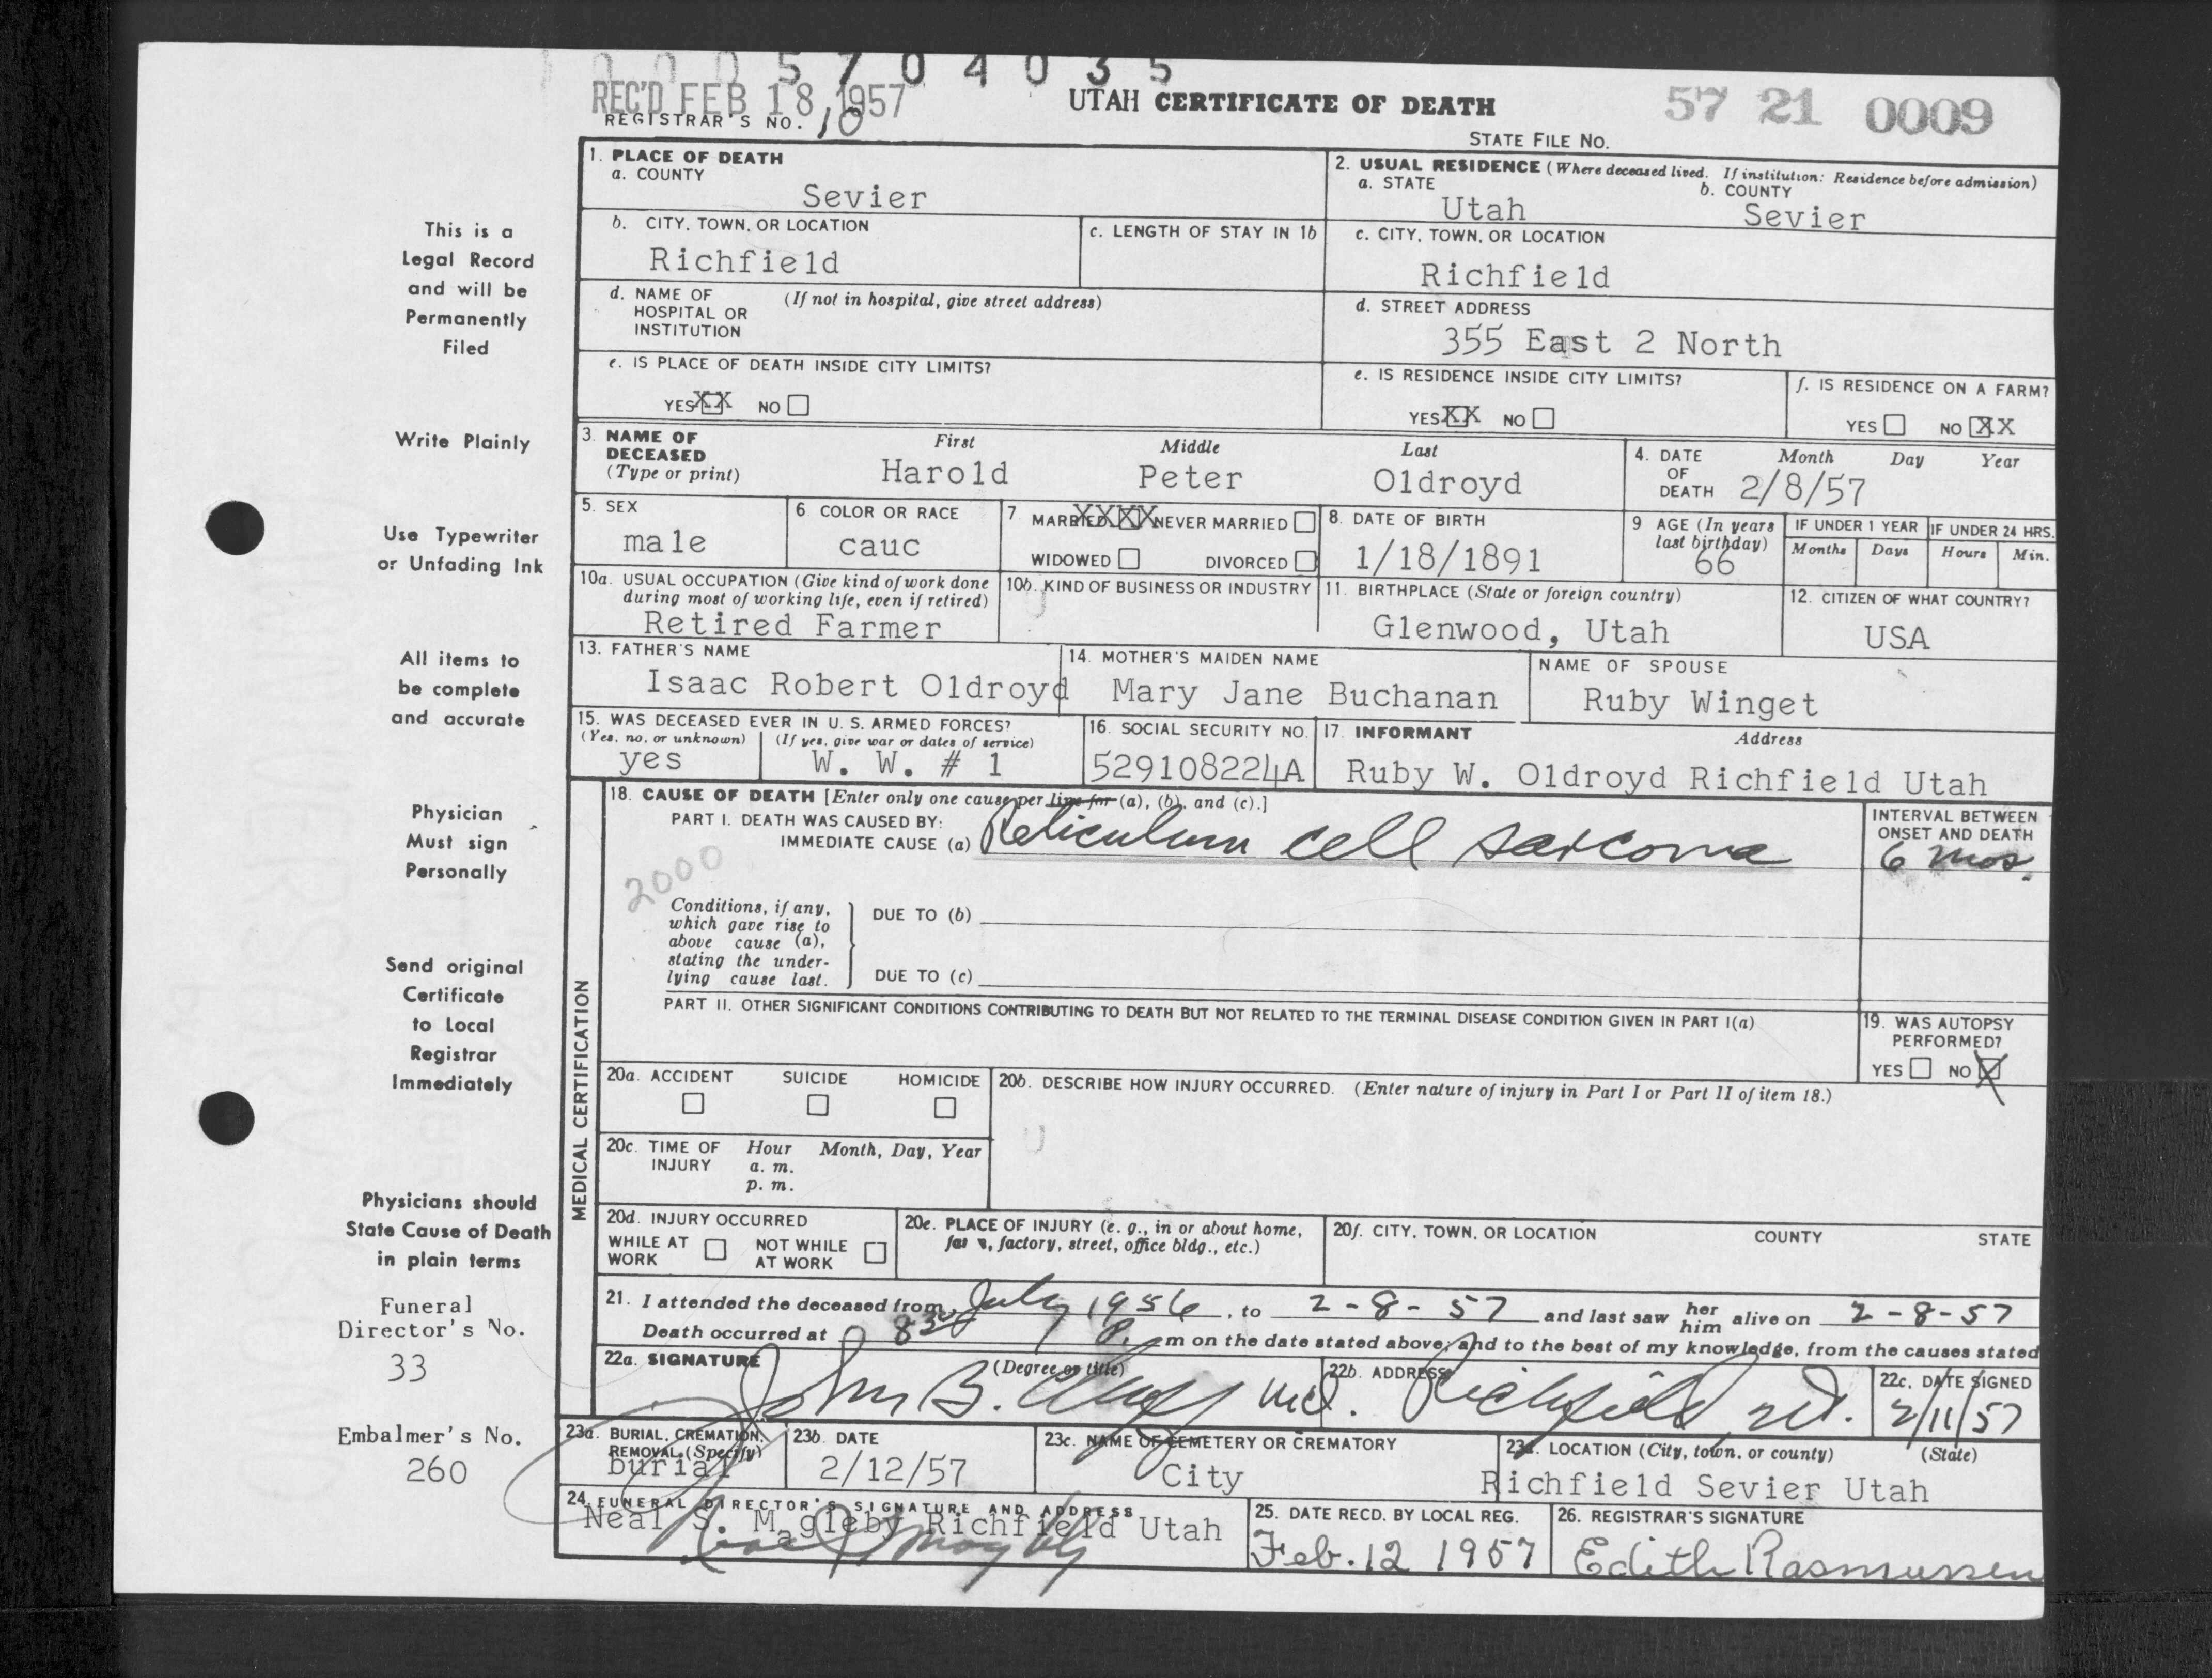 0005704035
REC'D FEB 18 1957
REGISTRAR'S NO. 10
UTAH CERTIFICATE OF DEATH
57 21 0009
STATE FILE NO.
This is a
Legal Record
and will be
Permanently
Filed
Write Plainly
Use Typewriter
or Unfading Ink
All items to
be complete
and accurate
Physician
Must sign
Personally
Send original
Certificate
to Local
Registrar
Immediately
Physicians should
State Cause of Death
in plain terms
Funeral
Director's No.
33
Embalmer's No.
260
1. PLACE OF DEATH
a. COUNTY
Sevier
b. CITY, TOWN, OR LOCATION
Richfield
c. LENGTH OF STAY IN 1b
d. NAME OF HOSPITAL OR INSTITUTION (If not in hospital, give street address)
e. IS PLACE OF DEATH INSIDE CITY LIMITS?
YES XX NO
2. USUAL RESIDENCE (Where deceased lived. If institution: Residence before admission)
a. STATE
Utah
b. COUNTY
Sevier
c. CITY, TOWN, OR LOCATION
Richfield
d. STREET ADDRESS
355 East 2 North
e. IS RESIDENCE INSIDE CITY LIMITS?
YES XX NO
f. IS RESIDENCE ON A FARM?
YES NO XX
3. NAME OF DECEASED (Type or print)
First Middle Last
Harold Peter Oldroyd
4. DATE OF DEATH Month Day Year
2/8/57
5. SEX
male
6. COLOR OR RACE
cauc
7 MARRIED XXXX NEVER MARRIED
WIDOWED DIVORCED
8. DATE OF BIRTH
1/18/1891
9 AGE (In years last birthday)
66
IF UNDER 1 YEAR
Months Days
IF UNDER 24 HRS.
Hours Min.
10a. USUAL OCCUPATION (Give kind of work done during most of working life, even if retired)
Retired Farmer
10b. KIND OF BUSINESS OR INDUSTRY
11. BIRTHPLACE (State or foreign country)
Glenwood, Utah
12. CITIZEN OF WHAT COUNTRY?
USA
13. FATHER'S NAME
Isaac Robert Oldroyd
14. MOTHER'S MAIDEN NAME
Mary Jane Buchanan
NAME OF SPOUSE
Ruby Winget
15. WAS DECEASED EVER IN U. S. ARMED FORCES?
(Yes, no, or unknown) (If yes, give war or dates of service)
yes W. W. # 1
16. SOCIAL SECURITY NO.
529108224A
17. INFORMANT Address
Ruby W. Oldroyd Richfield Utah
MEDICAL CERTIFICATION
18. CAUSE OF DEATH [Enter only one cause per line for (a), (b), and (c).]
PART I. DEATH WAS CAUSED BY:
IMMEDIATE CAUSE (a) Reticulum cell sarcoma
INTERVAL BETWEEN ONSET AND DEATH
6 mos.
2000
Conditions, if any, which gave rise to above cause (a), stating the underlying cause last.
DUE TO (b)
DUE TO (c)
PART II. OTHER SIGNIFICANT CONDITIONS CONTRIBUTING TO DEATH BUT NOT RELATED TO THE TERMINAL DISEASE CONDITION GIVEN IN PART I(a)
19. WAS AUTOPSY PERFORMED?
YES NO X
20a. ACCIDENT SUICIDE HOMICIDE
20b. DESCRIBE HOW INJURY OCCURRED. (Enter nature of injury in Part I or Part II of item 18.)
20c. TIME OF INJURY Hour Month, Day, Year
a. m.
p. m.
20d. INJURY OCCURRED
WHILE AT WORK NOT WHILE AT WORK
20e. PLACE OF INJURY (e. g., in or about home, factory, street, office bldg., etc.)
20f. CITY, TOWN, OR LOCATION COUNTY STATE
21. I attended the deceased from July 1956, to 2-8-57 and last saw her him alive on 2-8-57
Death occurred at 8 30 P. m on the date stated above; and to the best of my knowledge, from the causes stated
22a. SIGNATURE (Degree or title)
John B. M.d.
22b. ADDRESS
Richfield Ut.
22c. DATE SIGNED
2/11/57
23a. BURIAL, CREMATION, REMOVAL (Specify)
burial
23b. DATE
2/12/57
23c. NAME OF CEMETERY OR CREMATORY
City
23d. LOCATION (City, town, or county) (State)
Richfield Sevier Utah
24. FUNERAL DIRECTOR'S SIGNATURE AND ADDRESS
Neal S. Magleby Richfield Utah
Neal S Magleby
25. DATE RECD. BY LOCAL REG.
Feb. 12 1957
26. REGISTRAR'S SIGNATURE
Edith Rasmussen